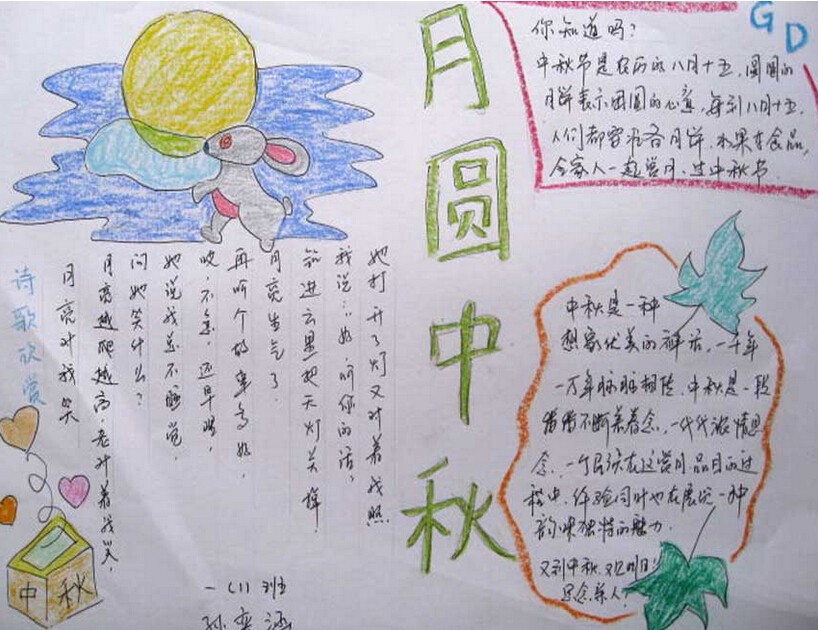 月圆中秋
G D
你知道吗?
中秋节是农历的八月十五,圆圆的
月饼表示团圆的心意,每到八月十五,
人们都要准备月饼、水果等食品,
全家人一起赏月、过中秋节.
诗歌欣赏
月亮对我笑
月亮越爬越高,老对着我笑,
问她笑什么?
她说我总不睡觉,
哎,不急,还早呢,
再听个故事多好,
月亮生气了.
钻进云里把天灯关掉.
我说:"好,听你的话,
她打开了灯又对着我照
中秋是一种
想家优美的神话,一千年
一万年脉脉相传,中秋是一段
不断亲着念,一代代浓情思
念,一个民族在这赏月品月的过
程中,体验同时也在展现一种
韵味独特的魅力.
又到中秋,又
思念亲人
中秋
一(1)班
孙奕涵